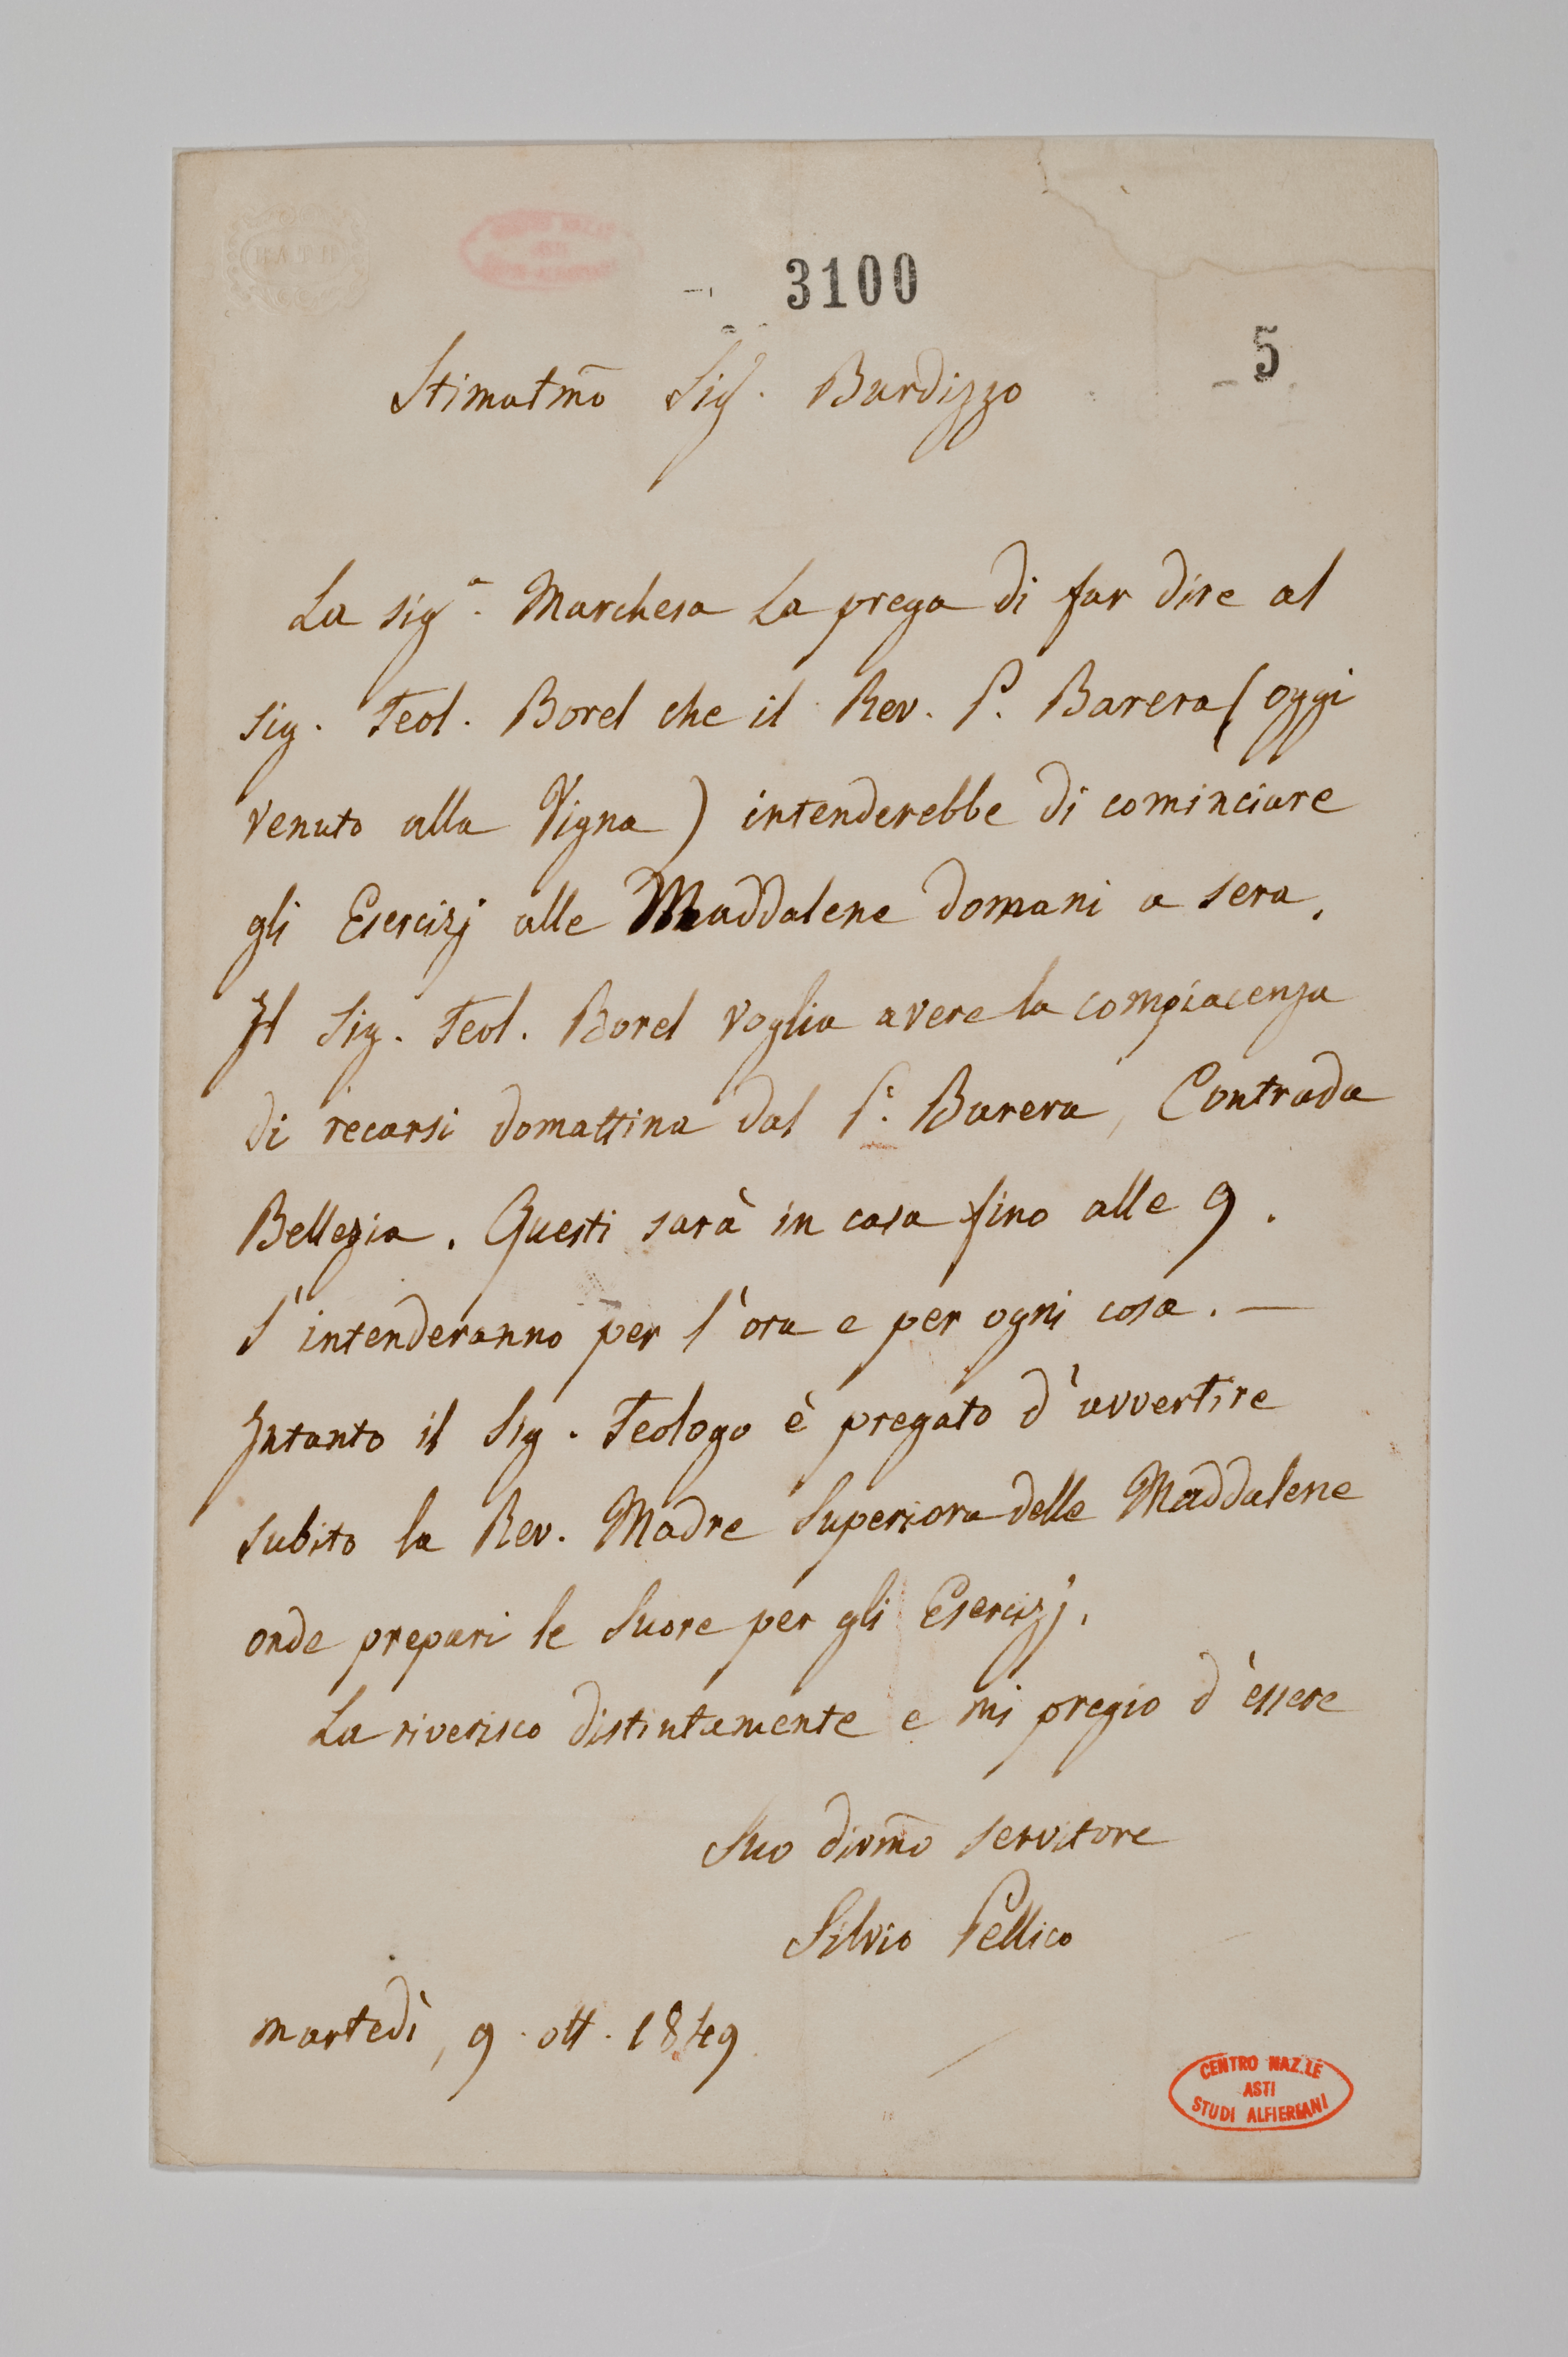 BATH
3100
5
Stimatmo Sig.r Burdizzo
La sig.a Marchesa La prega di far dire al
sig. Teol. Borel che il Rev. P. Barera (oggi
venuto alla Vigna) intenderebbe di cominciare
gli Esercizj alle Maddalene domani a sera.
Il Sig. Teol. Borel voglia avere la compiacenza
di recarsi domattina dal P. Barera, Contrada
Bellezia. Questi sarà in casa fino alle 9.
S'intenderanno per l'ora e per ogni cosa. —
Intanto il Sig. Teologo è pregato d'avvertire
subito la Rev. Madre Superiora delle Maddalene
onde prepari le Suore per gli Esercizj.
La riverisco distintamente e mi pregio d'essere
Suo divmo servitore
Silvio Pellico
martedì, 9. ott. 1849
CENTRO NAZ.LE
ASTI
STUDI ALFIERIANI